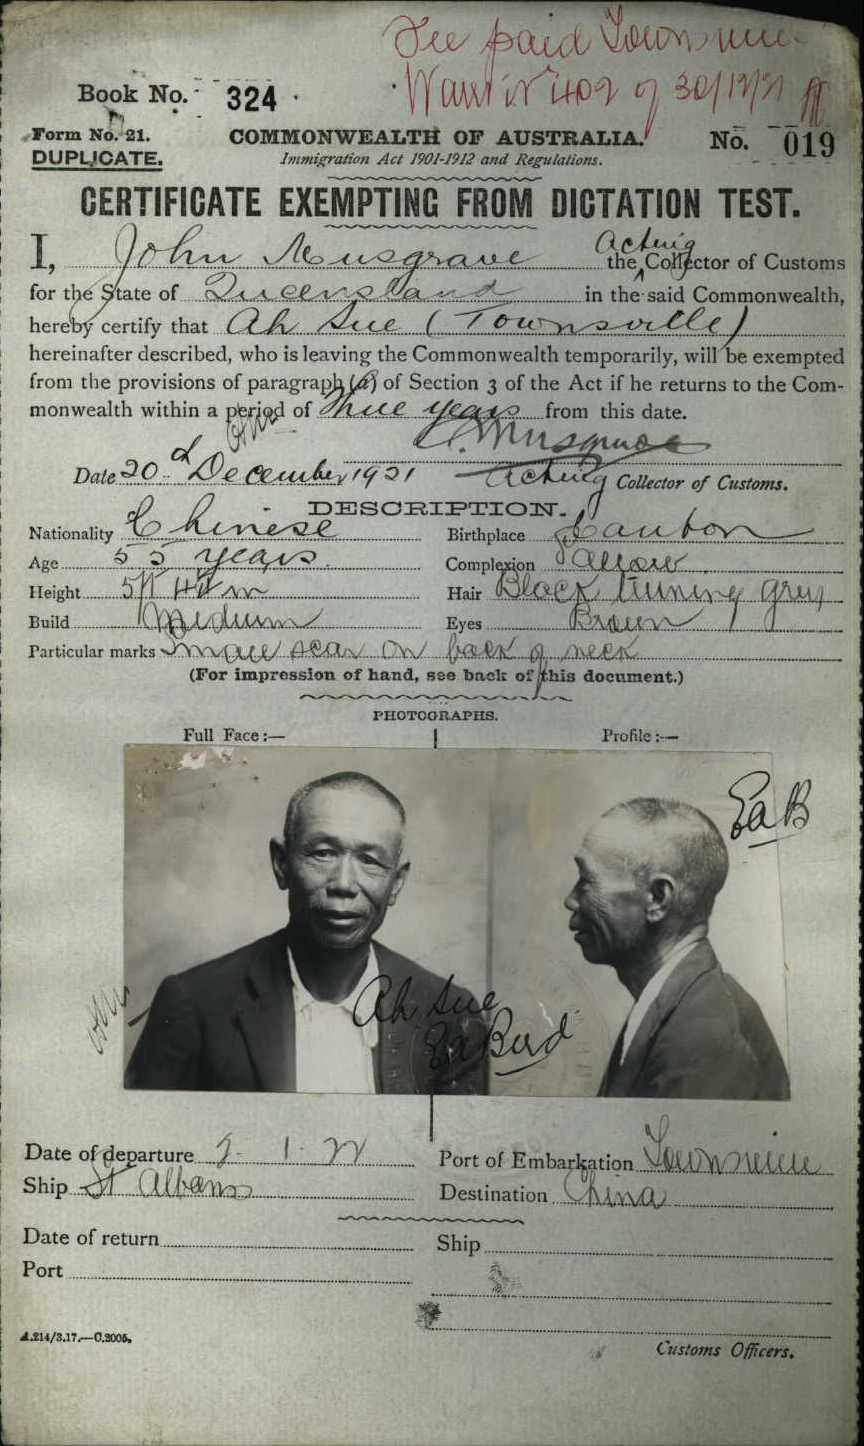 Fee paid Townsville
Warrt No 402 of 30/12/21
Book No. 324
Form No. 21.
DUPLICATE.
COMMONWEALTH OF AUSTRALIA.
No. 019
Immigration Act 1901-1912 and Regulations.
CERTIFICATE EXEMPTING FROM DICTATION TEST.
I, John Musgrave the Acting Collector of Customs
for the State of Queensland in the said Commonwealth,
hereby certify that Ah Sue (Townsville)
hereinafter described, who is leaving the Commonwealth temporarily, will be exempted
from the provisions of paragraph (a) of Section 3 of the Act if he returns to the Com-
monwealth within a period of Three years from this date.
J. Musgrave
Date 20th December 1921 Acting Collector of Customs.
DESCRIPTION.
Nationality Chinese Birthplace Canton
Age 55 years. Complexion Sallow
Height 5ft 4½ in Hair Black turning grey
Build Medium Eyes Brown
Particular marks Small scar on back of neck
(For impression of hand, see back of this document.)
PHOTOGRAPHS.
Full Face:— Profile:—
EaB
Ah Sue
Ea Bird
Date of departure 2 1 22 Port of Embarkation Townsville
Ship St Albans Destination China
Date of return Ship
Port
A.214/3.17.—C.2005.
Customs Officers.